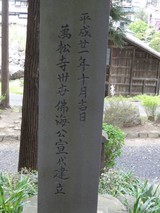 平成廿一年十月吉日
萬松寺卅世佛海公宣代建立